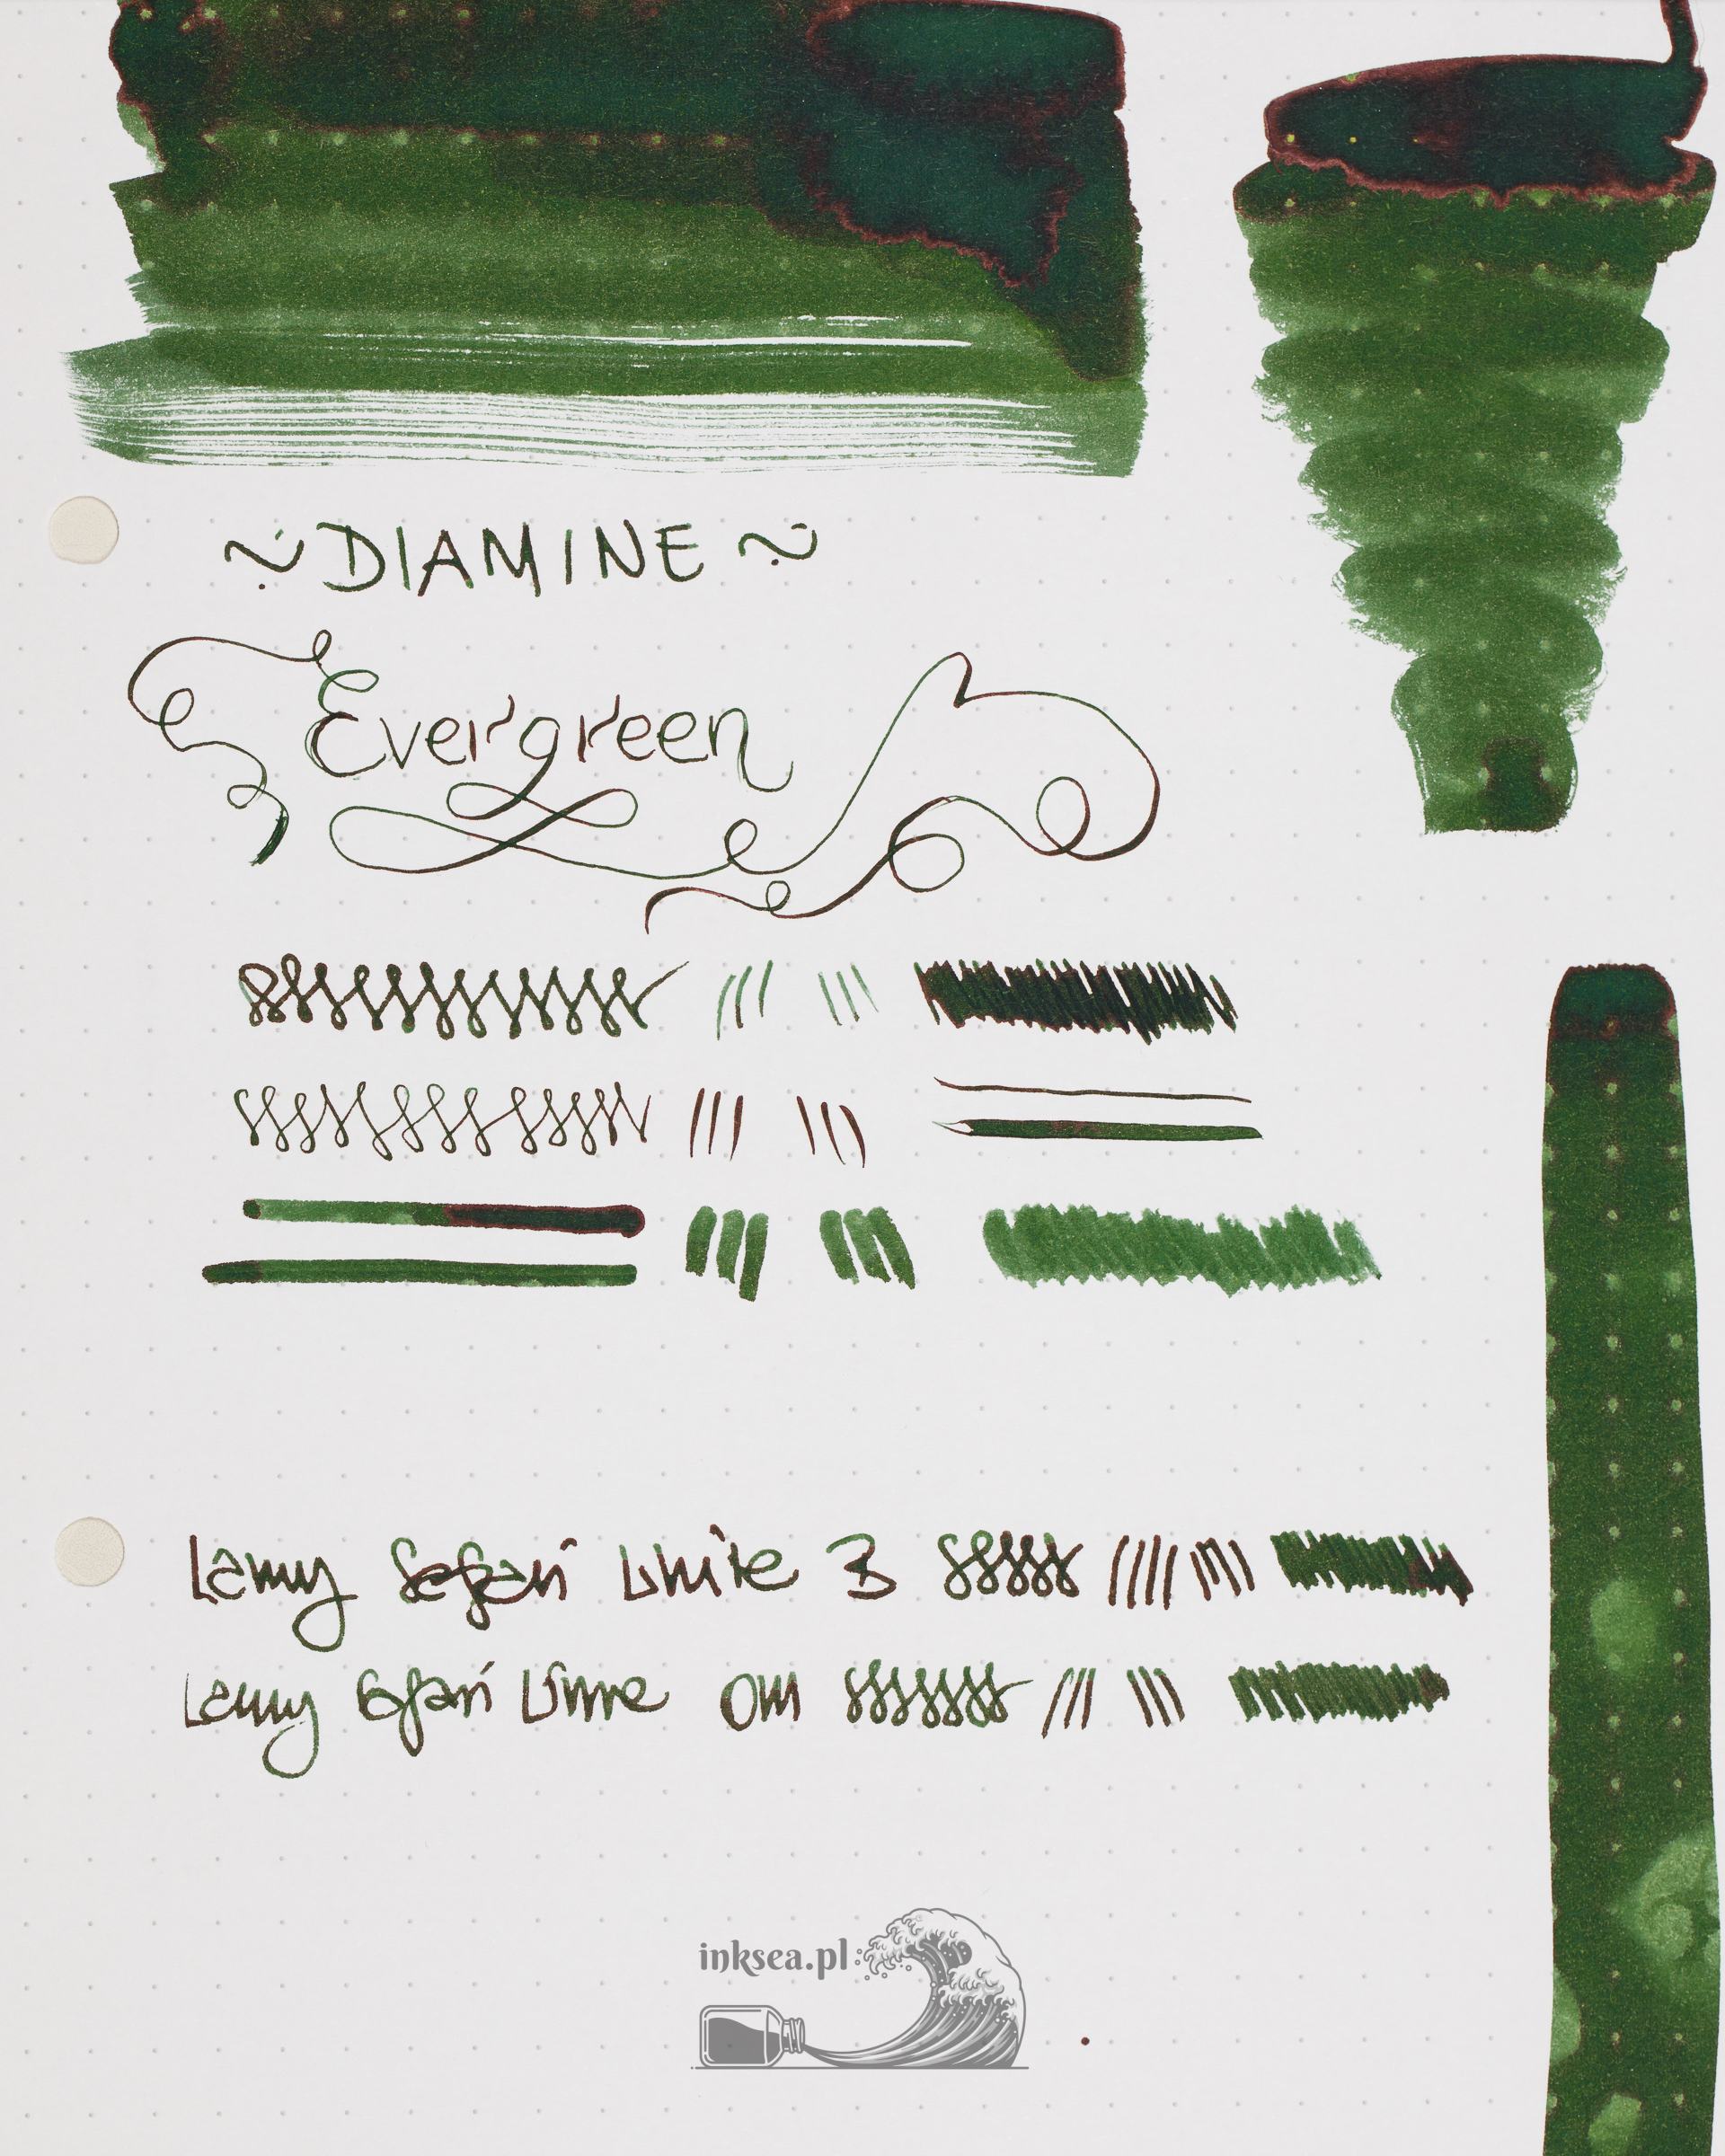 ~ DIAMINE ~
Evergreen
Lamy Safari White B
Lamy Safari White OM
inksea.pl